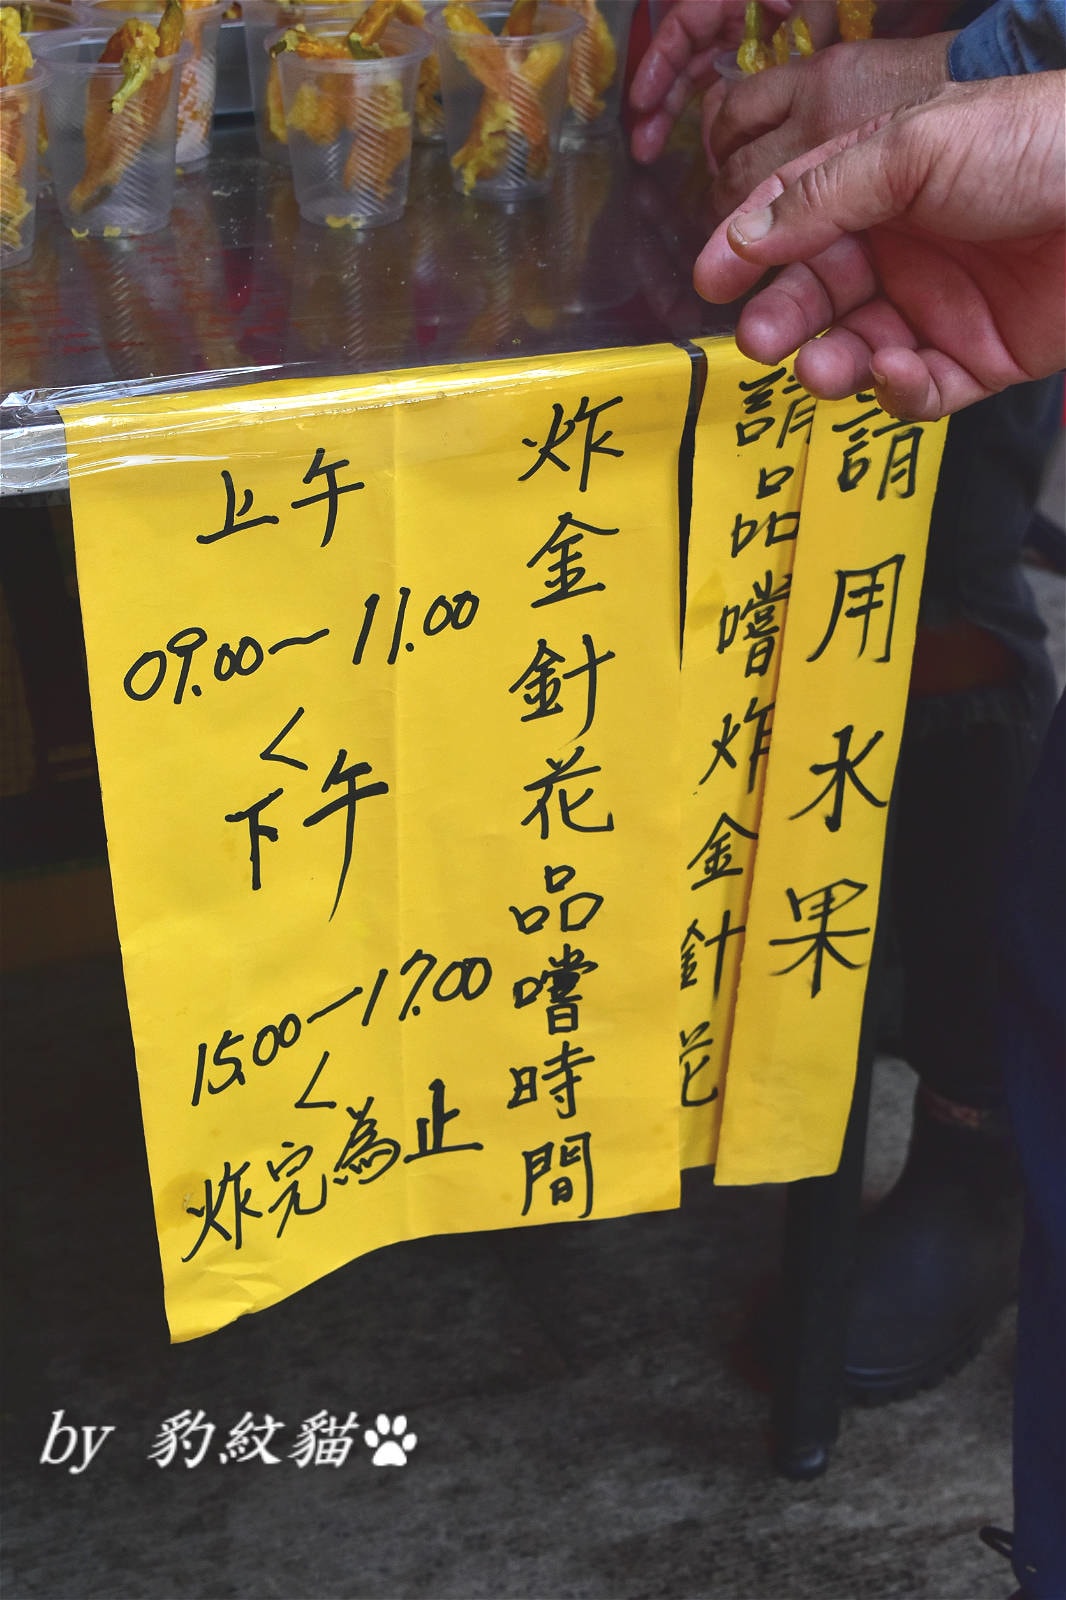 請用水果
請品嚐炸金針花
炸金針花品嚐時間
上午
09.00~11.00
<
下午
15.00~17.00
<
炸完為止
by 豹紋貓